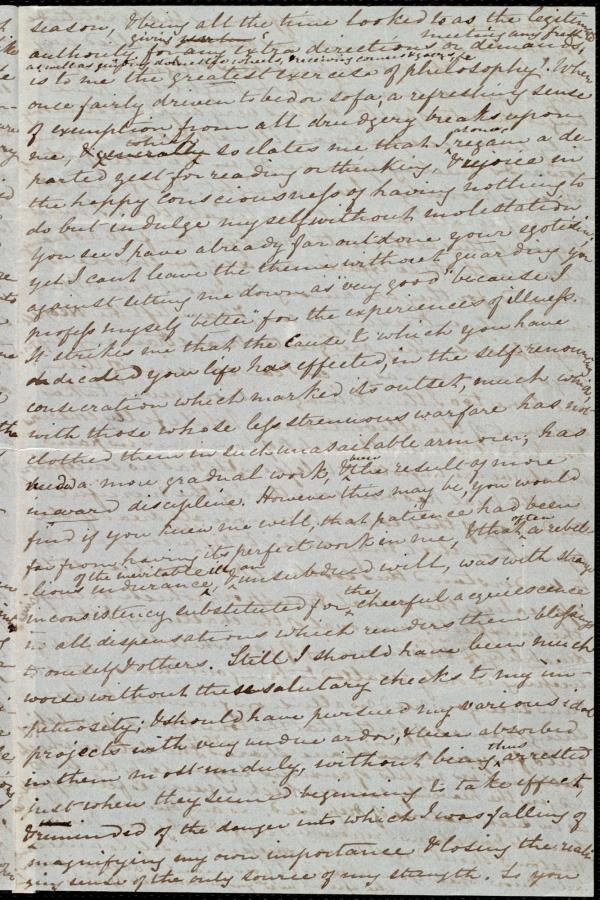 season, & being all the time looked to as the legitimate
giving meeting any fresh
authority for any extra directions or demands,
as well as guiding domestic wheels, & receiving
is to me the greatest exercise of philosophy! When
once fairly driven to bed or sofa, a refreshing sense
of exemption from all drudgery breaks upon
me, & generally so elates me that I regain a de-
parted zest for reading or thinking, & rejoice in
the happy consciousness of having nothing to
do but indulge myself without molestation
You see I have already far outdone your egotism,
yet I can't leave the theme without guarding you
against setting me down as "very good" because I
profess myself "better" for the experiences of illness.
It strikes me that the cause to which you have
dedicated your life has effected, in the self-renouncing
consecration which marked its outset, much which,
with those whose less strenuous warfare has not
clothed them in such unassailable armour, has
been
need a more gradual work, & the result of more
inward discipline. However this may be, you would
find if you knew me well, that patience had been
of often
far from having its perfect work in me, & that a rebel-
of the inevitable ill, an
lious endurance, & unsubdued will, was with strange
the
inconsistency substituted for cheerful acquiescence
in all dispensations which renders them blessings
to oneself & others. Still I should have been much
worse without these salutary checks to my im-
petuosity; I should have pursued my various idol
projects with very undue ardor, & been absorbed
thus
in them most unduly, without being arrested
just when they seemed beginning to take effect,
& reminded of the danger into which I was falling of
magnifying my own importance & losing the reali-
zing sense of the only source of my strength. So you